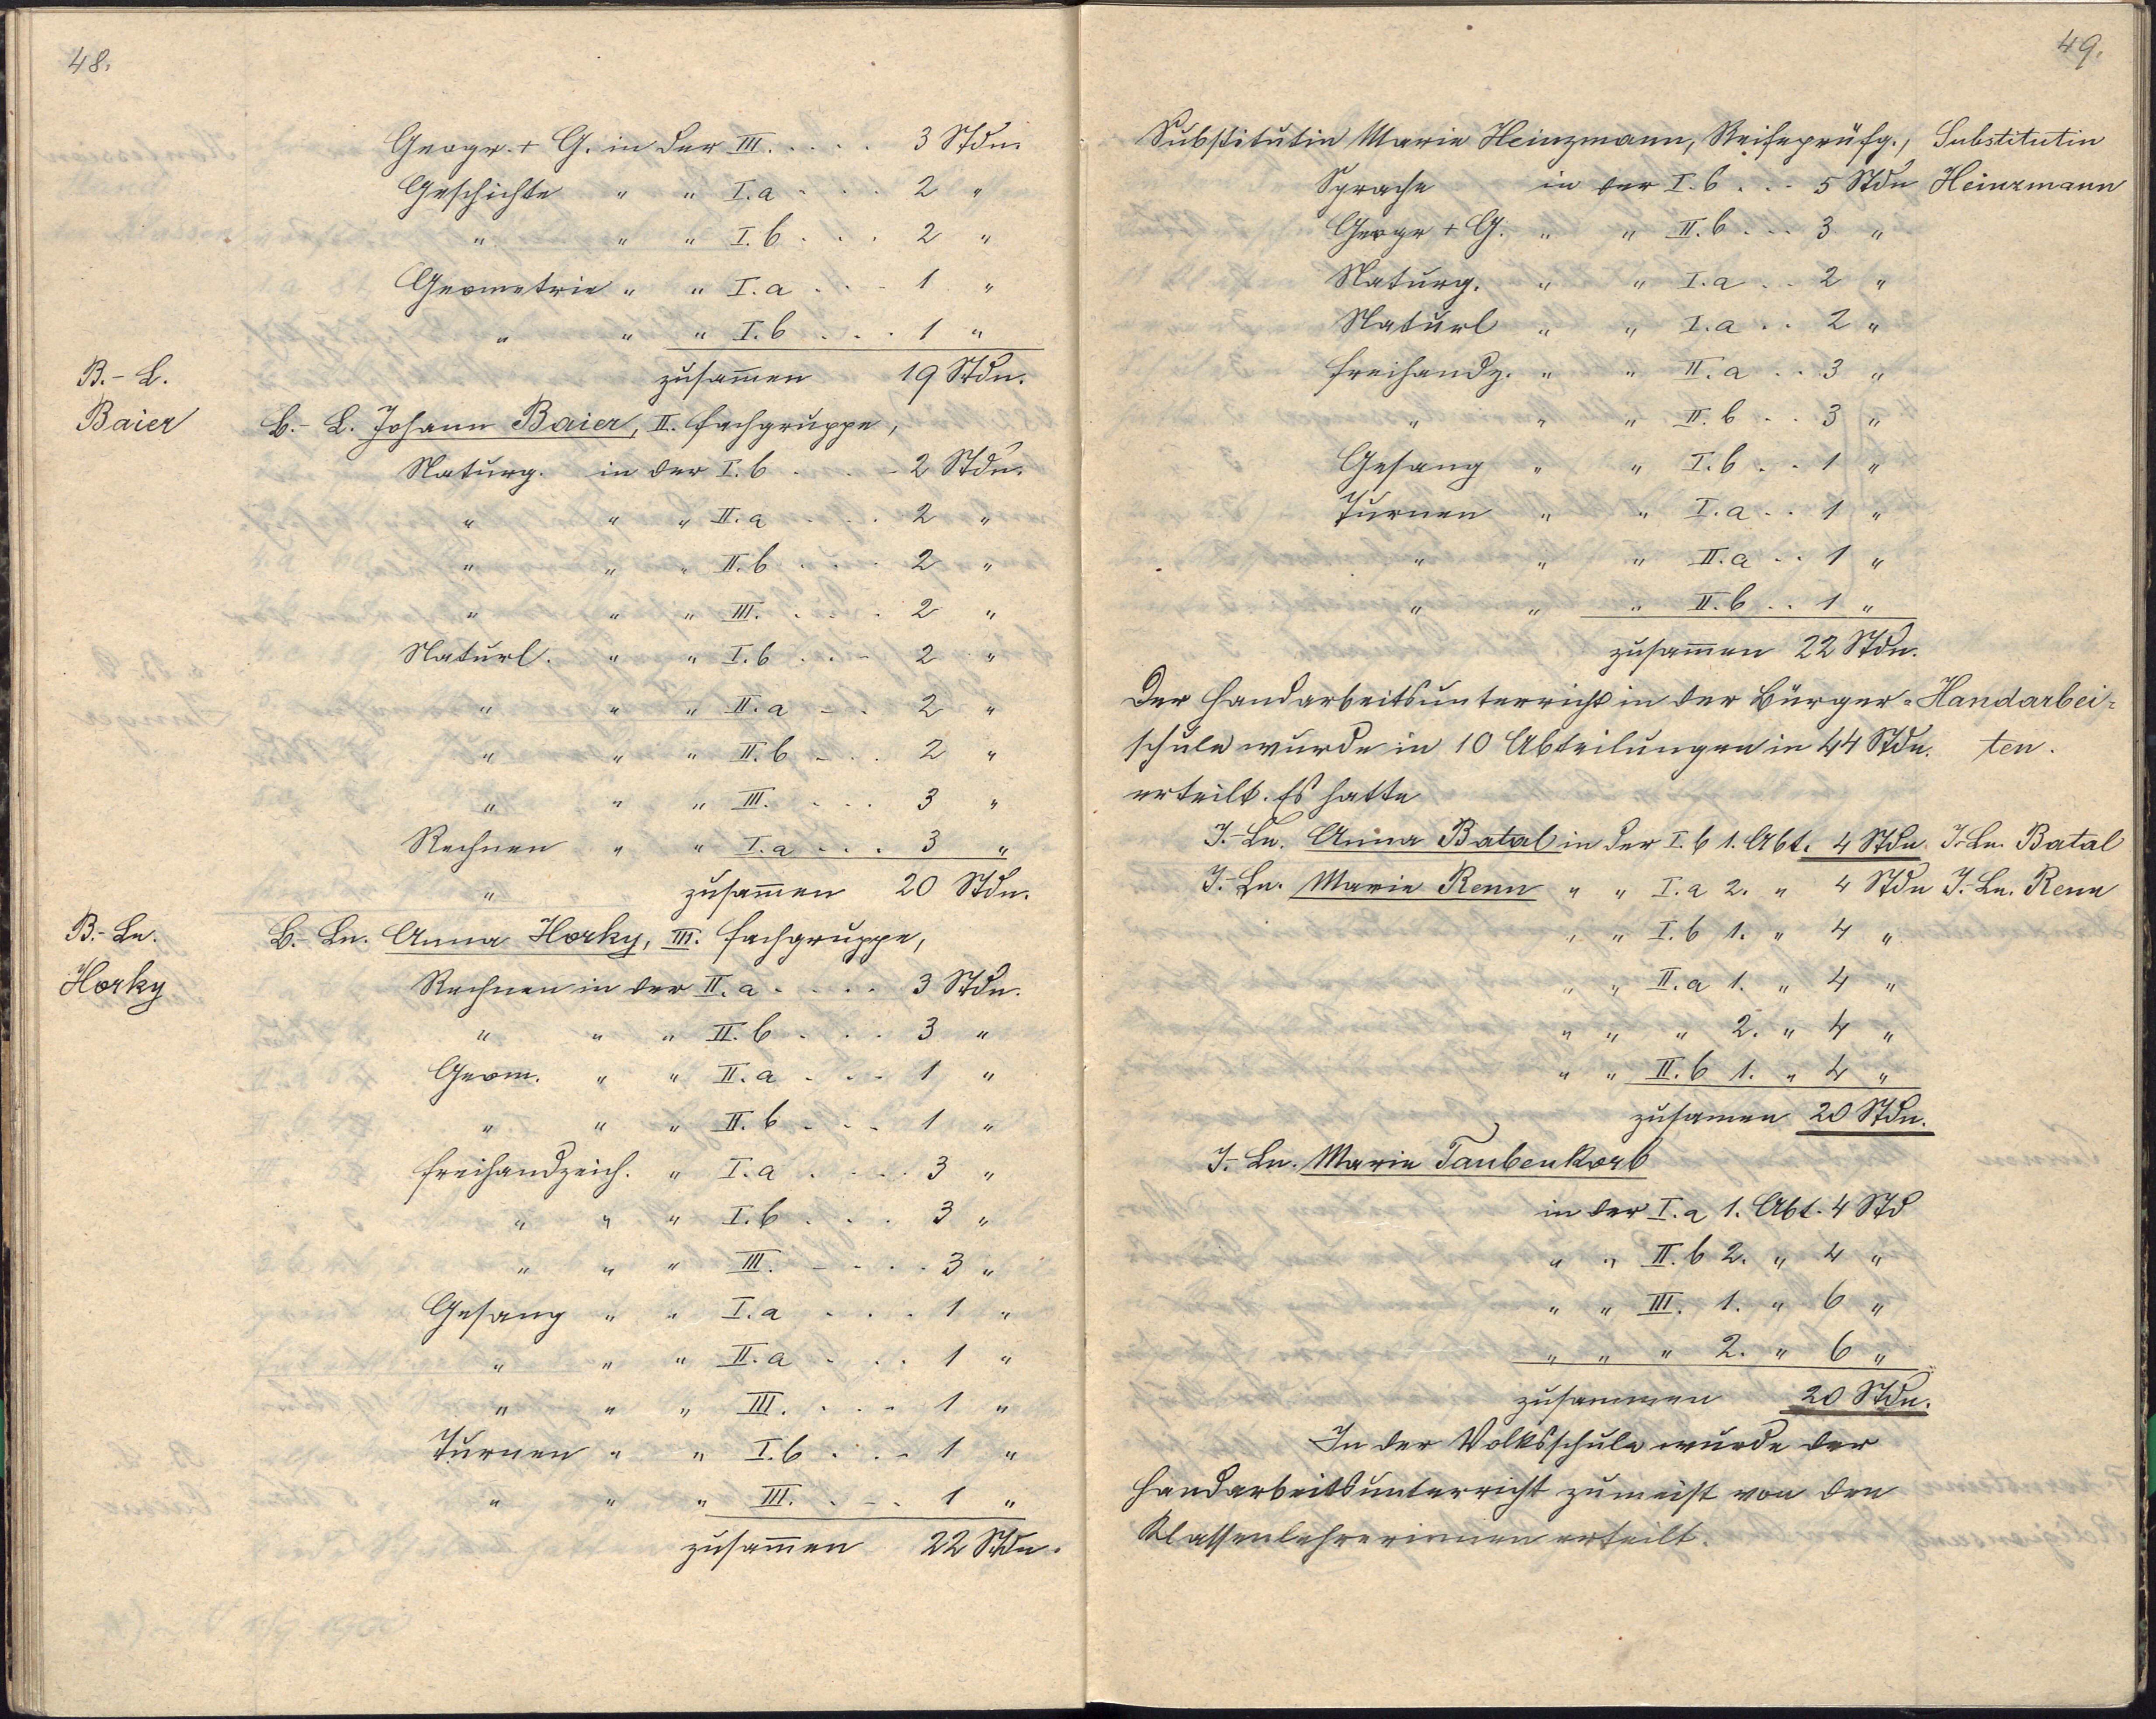 48.
Geogr. + G. in der III. . . . . 3 Stdn.
Geschichte " " I. a . . . 2 "
" " " I. b . . . 2 "
Geometrie " " I. a . . . 1 "
" " " I. b . . . 1 "
B.-L. zusam̅en 19 Stdn.
Baier B.-L. Johann Baier, II. Fachgruppe,
Naturg. in der I. b . . . 2 Stdn.
" " " II. a . . . 2 "
" " " II. b . . . 2 "
" " " III. . . . 2 "
Naturl. " " I. b . . . 2 "
" " " II. a . . . 2 "
" " " II. b . . . 2 "
" " " III. . . . 3 "
Rechnen " " I. a . . . 3 "
" zusam̅en 20 Stdn.
B.-Ln. B.-Ln. Anna Horky, III. Fachgruppe,
Horky Rechnen in der II. a . . . . 3 Stdn.
" " " II. b . . . 3 "
Geom. " " II. a . . . 1 "
" " " II. b . . . 1 "
Freihandzeich. " I. a . . . . 3 "
" " " I. b . . . 3 "
" " " III. . . . . 3 "
Gesang " " I. a . . . 1 "
" " " II. a . . . 1 "
" " " III. . . . 1 "
Turnen " " I. b . . . 1 "
" " " III. . . . 1 "
zusam̅en 22 Stdn.
49.
Substitutin Marie Heinzmann, Reifeprüfg., Substitutin
Sprache in der I. b . . . 5 Stdn Heinzmann
Geogr + G. " " II. b . . . 3 "
Naturg. " " I. a . . 2 "
Naturl " " I. a . . 2 "
Freihandz. " " II. a . . 3 "
" " " II. b . . 3 "
Gesang " " I. b . . 1 "
Turnen " " I. a . . 1 "
" " " II. a . . 1 "
" " " II. b . . 1 "
zusam̅en 22 Stdn.
Der Handarbeitsunterricht in der Bürger= Handarbei=
schule wurde in 10 Abteilungen in 44 Stdn. ten.
erteilt. Es hatte
J.-Ln. Anna Batal in der I. b 1. Abt. 4 Stdn J.-Ln. Batal
J.-Ln. Marie Renn " " I. a 2. " 4 Stdn J.-Ln. Renn
" " I. b 1. " 4 "
" " II. a 1. " 4 "
" " " 2. " 4 "
" " II. b 1. " 4 "
zusamen 20 Stdn.
J.-Ln. Marie Taubenkorb
in der I. a 1. Abt. 4 Std
" " II. b 2. " 4 "
" " III. 1. " 6 "
" " " 2. " 6 "
zusammen 20 Stdn.
In der Volksschule wurde der
Handarbeitsunterricht zumeist von den
Klassenlehrerinnen erteilt.